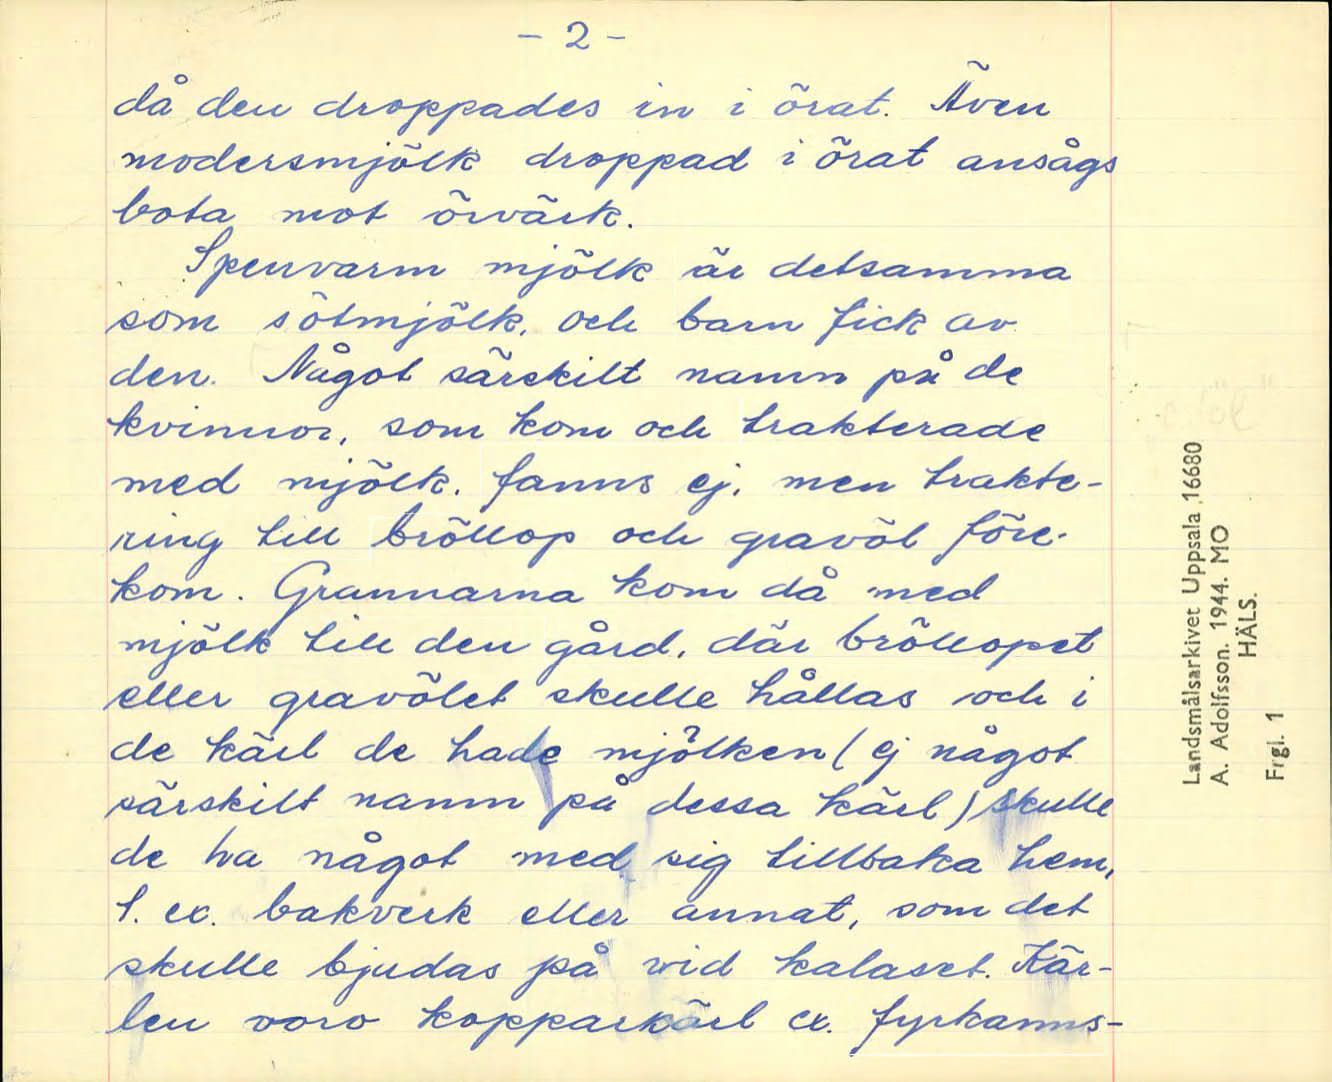 - 2 -
då den droppades in i örat. Även
modersmjölk droppad i örat ansågs
bota mot örvärk.
Spenvarm mjölk är detsamma
som sötmjölk, och barn fick av
den. Något särskilt namn på de
kvinnor, som kom och trakterade
med mjölk, fanns ej, men trakte-
ring till bröllop och gravöl före-
kom. Grannarna kom då med
mjölk till den gård, där bröllopet
eller gravölet skulle hållas och i
de kärl de hade mjölken (ej något
särskilt namn på dessa kärl) skulle
de ha något med sig tillbaka hem,
t. ex. bakverk eller annat, som det
skulle bjudas på vid kalaset. Kär-
len voro kopparkärl ex. fyrkanns-
Landsmålsarkivet Uppsala 16680
A. Adolfsson. 1944. MO
HÄLS.
Frgl. 1